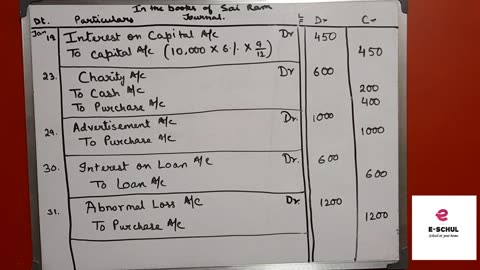 In the books of Sai Ram
Journal.
Dt. Particulars L.F Dr Cr
Jan 19. Interest on Capital A/c Dr 450
To Capital A/c (10,000 X 6% X 9/12) 450
23. Charity A/c Dr 600
To Cash A/c 200
To Purchase A/c 400
29. Advertisement A/c Dr. 1000
To Purchase A/c 1000
30. Interest on Loan A/c Dr. 600
To Loan A/c 600
31. Abnormal Loss A/c Dr. 1200
To Purchase A/c 1200
e
E-SCHUL